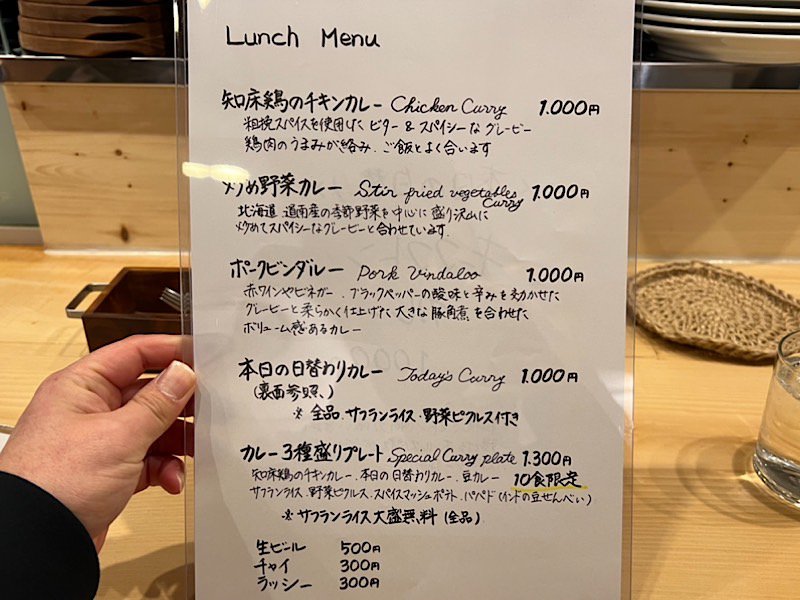 Lunch Menu
知床鶏のチキンカレー Chicken Curry 1.000円
粗挽スパイスを使用した ビター & スパイシーな グレービー
鶏肉のうまみが絡み、ご飯とよく合います
炒め野菜カレー Stir fried vegetables Curry 1.000円
北海道、道南産の季節野菜を中心に 盛り沢山に
炒めてスパイシーなグレービーと合わせています.
ポークビンダルー Pork Vindaloo 1.000円
赤ワインやビネガー、ブラックペッパーの酸味と辛みを効かせた
グレービーと柔らかく仕上げた大きな豚角煮を合わせた
ボリューム感あるカレー
本日の日替わりカレー Today's Curry 1.000円
(裏面参照、)
※ 全品、サフランライス・野菜ピクルス付き
カレー3種盛りプレート Special Curry plate 1.300円
知床鶏のチキンカレー、本日の日替わりカレー、豆カレー 10食限定
サフランライス、野菜ピクルス、スパイスマッシュポテト、パパド(インドの豆せんべい)
※ サフランライス大盛無料 (全品)
生ビール 500円
チャイ 300円
ラッシー 300円